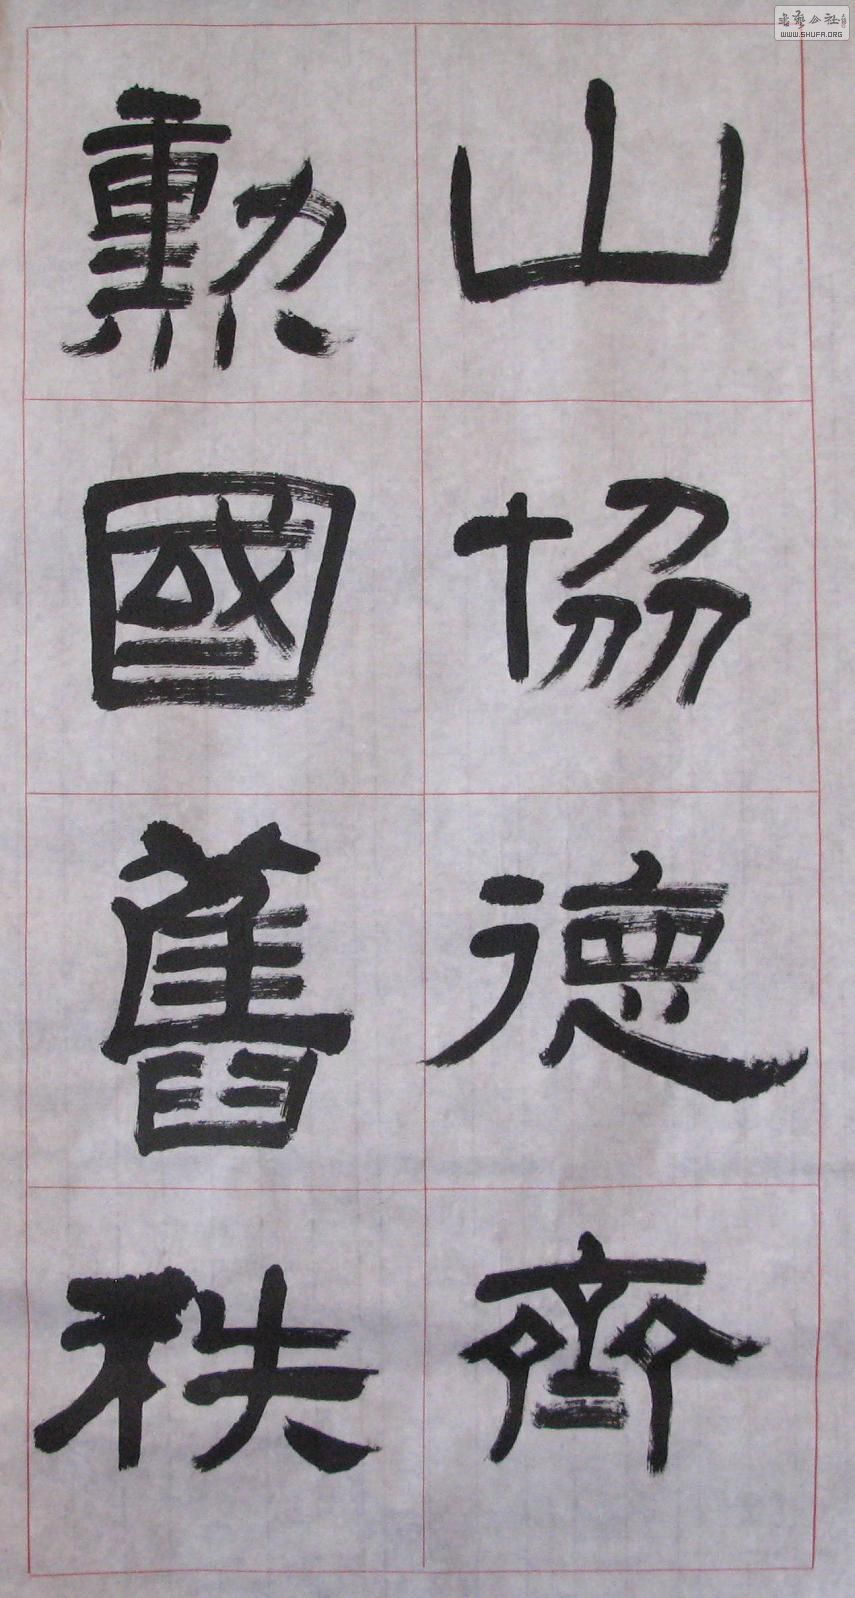 山協德齊
勲國舊秩
書藝公社
WWW.SHUFA.ORG